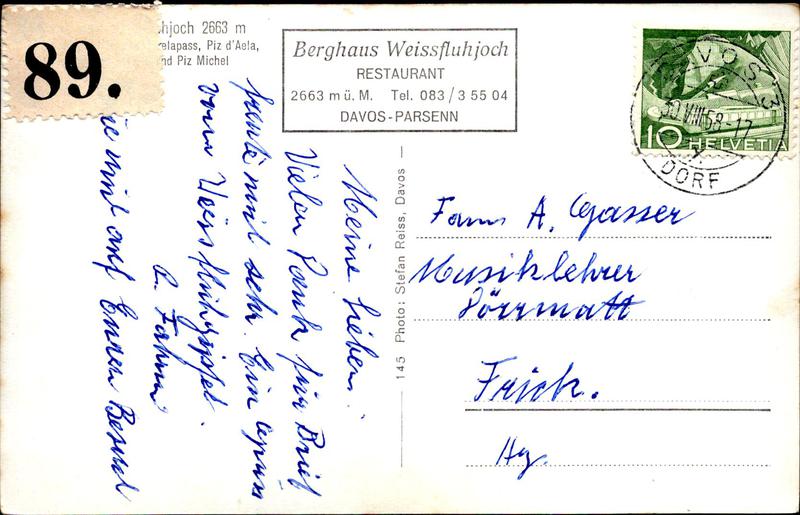 89.
hjoch 2663 m
elapass, Piz d'Aela,
nd Piz Michel
Berghaus Weissfluhjoch
RESTAURANT
2663 m ü. M. Tel. 083 / 3 55 04
DAVOS-PARSENN
DAVOS 3
30.VIII.58-17
DORF
10 HELVETIA
Meine Lieben!
Vielen Dank für Brief
freute mich sehr. Ein
vom Weissfluhgipfel.
mich auf Euren Besuch
145 Photo: Stefan Reiss, Davos
Fam. A. Gasser
Musiklehrer
Dörrmatt
Frick.
Ag.